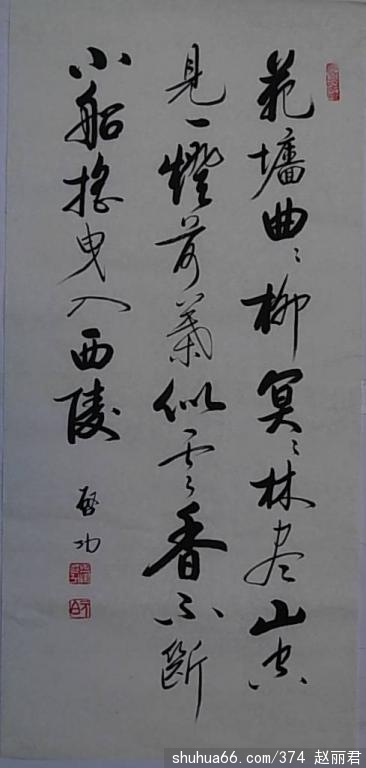 苑墻曲〻柳冥〻林尽山空
見一燈荷葉似雲香不斷
小船搖曳入西陵
啓功
shuhua66.com/374 赵丽君